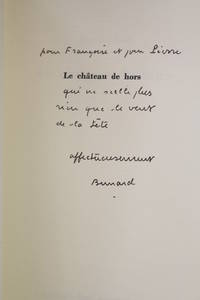 pour Françoise et pour Pierre
Le château de hors
qui ne scelle plus
rien que le vent
de la tête
affectueusement
Bernard